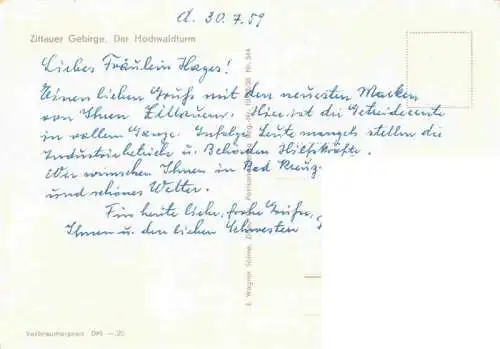 d. 30.7.59
Zittauer Gebirge. Der Hochwaldturm
Liebes Fräulein Hages!
Einen lieben Gruß mit den neuesten Marken
von Ihnen Zittauern. Hier ist die Getreideernte
in vollem Gange. Infolge Leutemangels stellen die
Industriebetriebe u. Behörden Hilfskräfte.
Wir wünschen Ihnen in Bad Kreuz-
und schönes Wetter.
Für heute liebe, frohe Grüße,
Ihnen u. den lieben Schwestern
E. Wagner Söhne,
Verbraucherpreis DM —.20